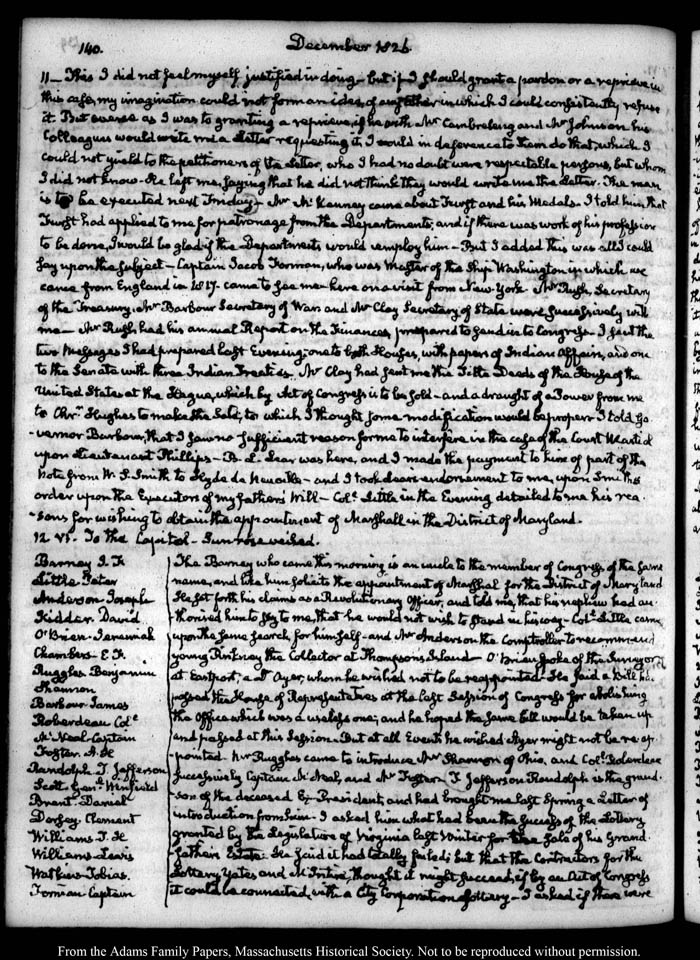 140.
December 1826.
11 — This I did not feel myself justified in doing — but if I should grant a pardon or a reprieve in
this case, my imagination could not form an idea, of another in which I could consistently refuse
it. But averse as I was to granting a reprieve, if he with Mr Cambreleng and Mr Johnson his
Colleagues would write me a Letter requesting it I would in deference to them do that, which I
could not yield to the petitioners of the Letter, who I had no doubt were respectable persons, but whom
I did not know. He left me, saying that he did not think they would write me the Letter. The man
is to be executed next Friday — Mr McKenney came about Furst and his Medals. I told him, that
Furst had applied to me for patronage from the Departments, and if there was work of his profession
to be done, I would be glad if the Departments would employ him — But I added this was all I could
say upon the subject — Captain Jacob Forman, who was Master of the Ship Washington in which we
came from England in 1817. came to see me here on a visit from New-York. Mr Rush, Secretary
of the Treasury, Mr Barbour Secretary of War and Mr Clay Secretary of State were successively with
me — Mr Rush, had his annual Report on the Finances, prepared to send in to Congress. I sent the
two Messages I had prepared last Evening; one to both Houses, with papers of Indian Affairs, and one
to the Senate with three Indian Treaties. Mr Clay had sent me the Title Deeds of the House of the
United States at the Hague, which by Act of Congress is to be sold — and a draught of a Power from me
to Chr. Hughes to make the Sale, to which I thought some modification would be proper. I told Go-
-vernor Barbour, that I saw no sufficient reason for me to interfere in the case of the Court Martial
upon Lieutenant Phillips — B. L. Lear was here, and I made the payment to him of part of the
Note from W. S. Smith to Hyde de Neuville — and I took Lear's endorsement to me, upon Smith's
order upon the Executors of my father's Will — Col. Little in the Evening detailed to me his rea-
-sons for wishing to obtain the appointment of Marshall in the District of Maryland.
12. VI. To the Capitol. Sun rose veiled.
Barney I. H
Little Peter
Anderson Joseph
Kidder David
O'Brien Jeremiah
Chambers E. F.
Ruggles Benjamin
Shannon
Barbour James
Roberdeau Col.
McNeal Captain
Foster. A. H
Randolph T. Jefferson
Scott Gen. Winfield
Brent Daniel
Dorsey Clement
Williams T. H
Williams Lewis
Watkins Tobias.
Forman Captain
The Barney who came this morning is an uncle to the member of Congress of the same
name, and like him solicits the appointment of Marshal for the District of Maryland
He set forth his claims as a Revolutionary Officer, and told me, that his nephew had au-
thorised him to say to me, that he would not wish to stand in his way — Col. Little came
upon the same search, for himself — and Mr Anderson the Comptroller to recommend
young Pinkney the Collector at Thompson's Island — O'Brien spoke of the Surveyor
at Eastport, a Dr Ayer, whom he wished not to be reappointed. He said a Bill had
passed the House of Representatives at the last Session of Congress for abolishing
the Office which was a useless one; and he hoped the same bill would be taken up
and passed at this Session. But at all Events he wished Ayer might not be re-ap-
-pointed. Mr Ruggles came to introduce Mr Shannon of Ohio, and Col. Roberdeau
successively Captain McNeal, and Mr Foster. T. Jefferson Randolph is the grand-
-son of the deceased Ex-President, and had brought me last Spring a Letter of
introduction from him. I asked him what had been the success of the Lottery
granted by the Legislature of Virginia last Winter for the sale of his Grand-
-father's Estate. He said it had totally failed; but that the Contractors for the
Lottery Yates and McIntire, thought it might succeed, if by an Act of Congress
it could be connected, with a City Corporation Lottery — I asked if there were
From the Adams Family Papers, Massachusetts Historical Society. Not to be reproduced without permission.